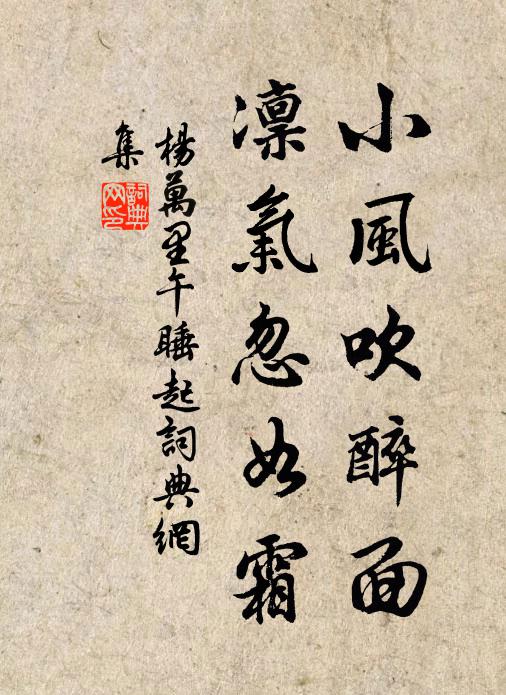 小風吹醉面
凛氣忽如霜
楊萬里午睡起詞典網
集
詞典
网印